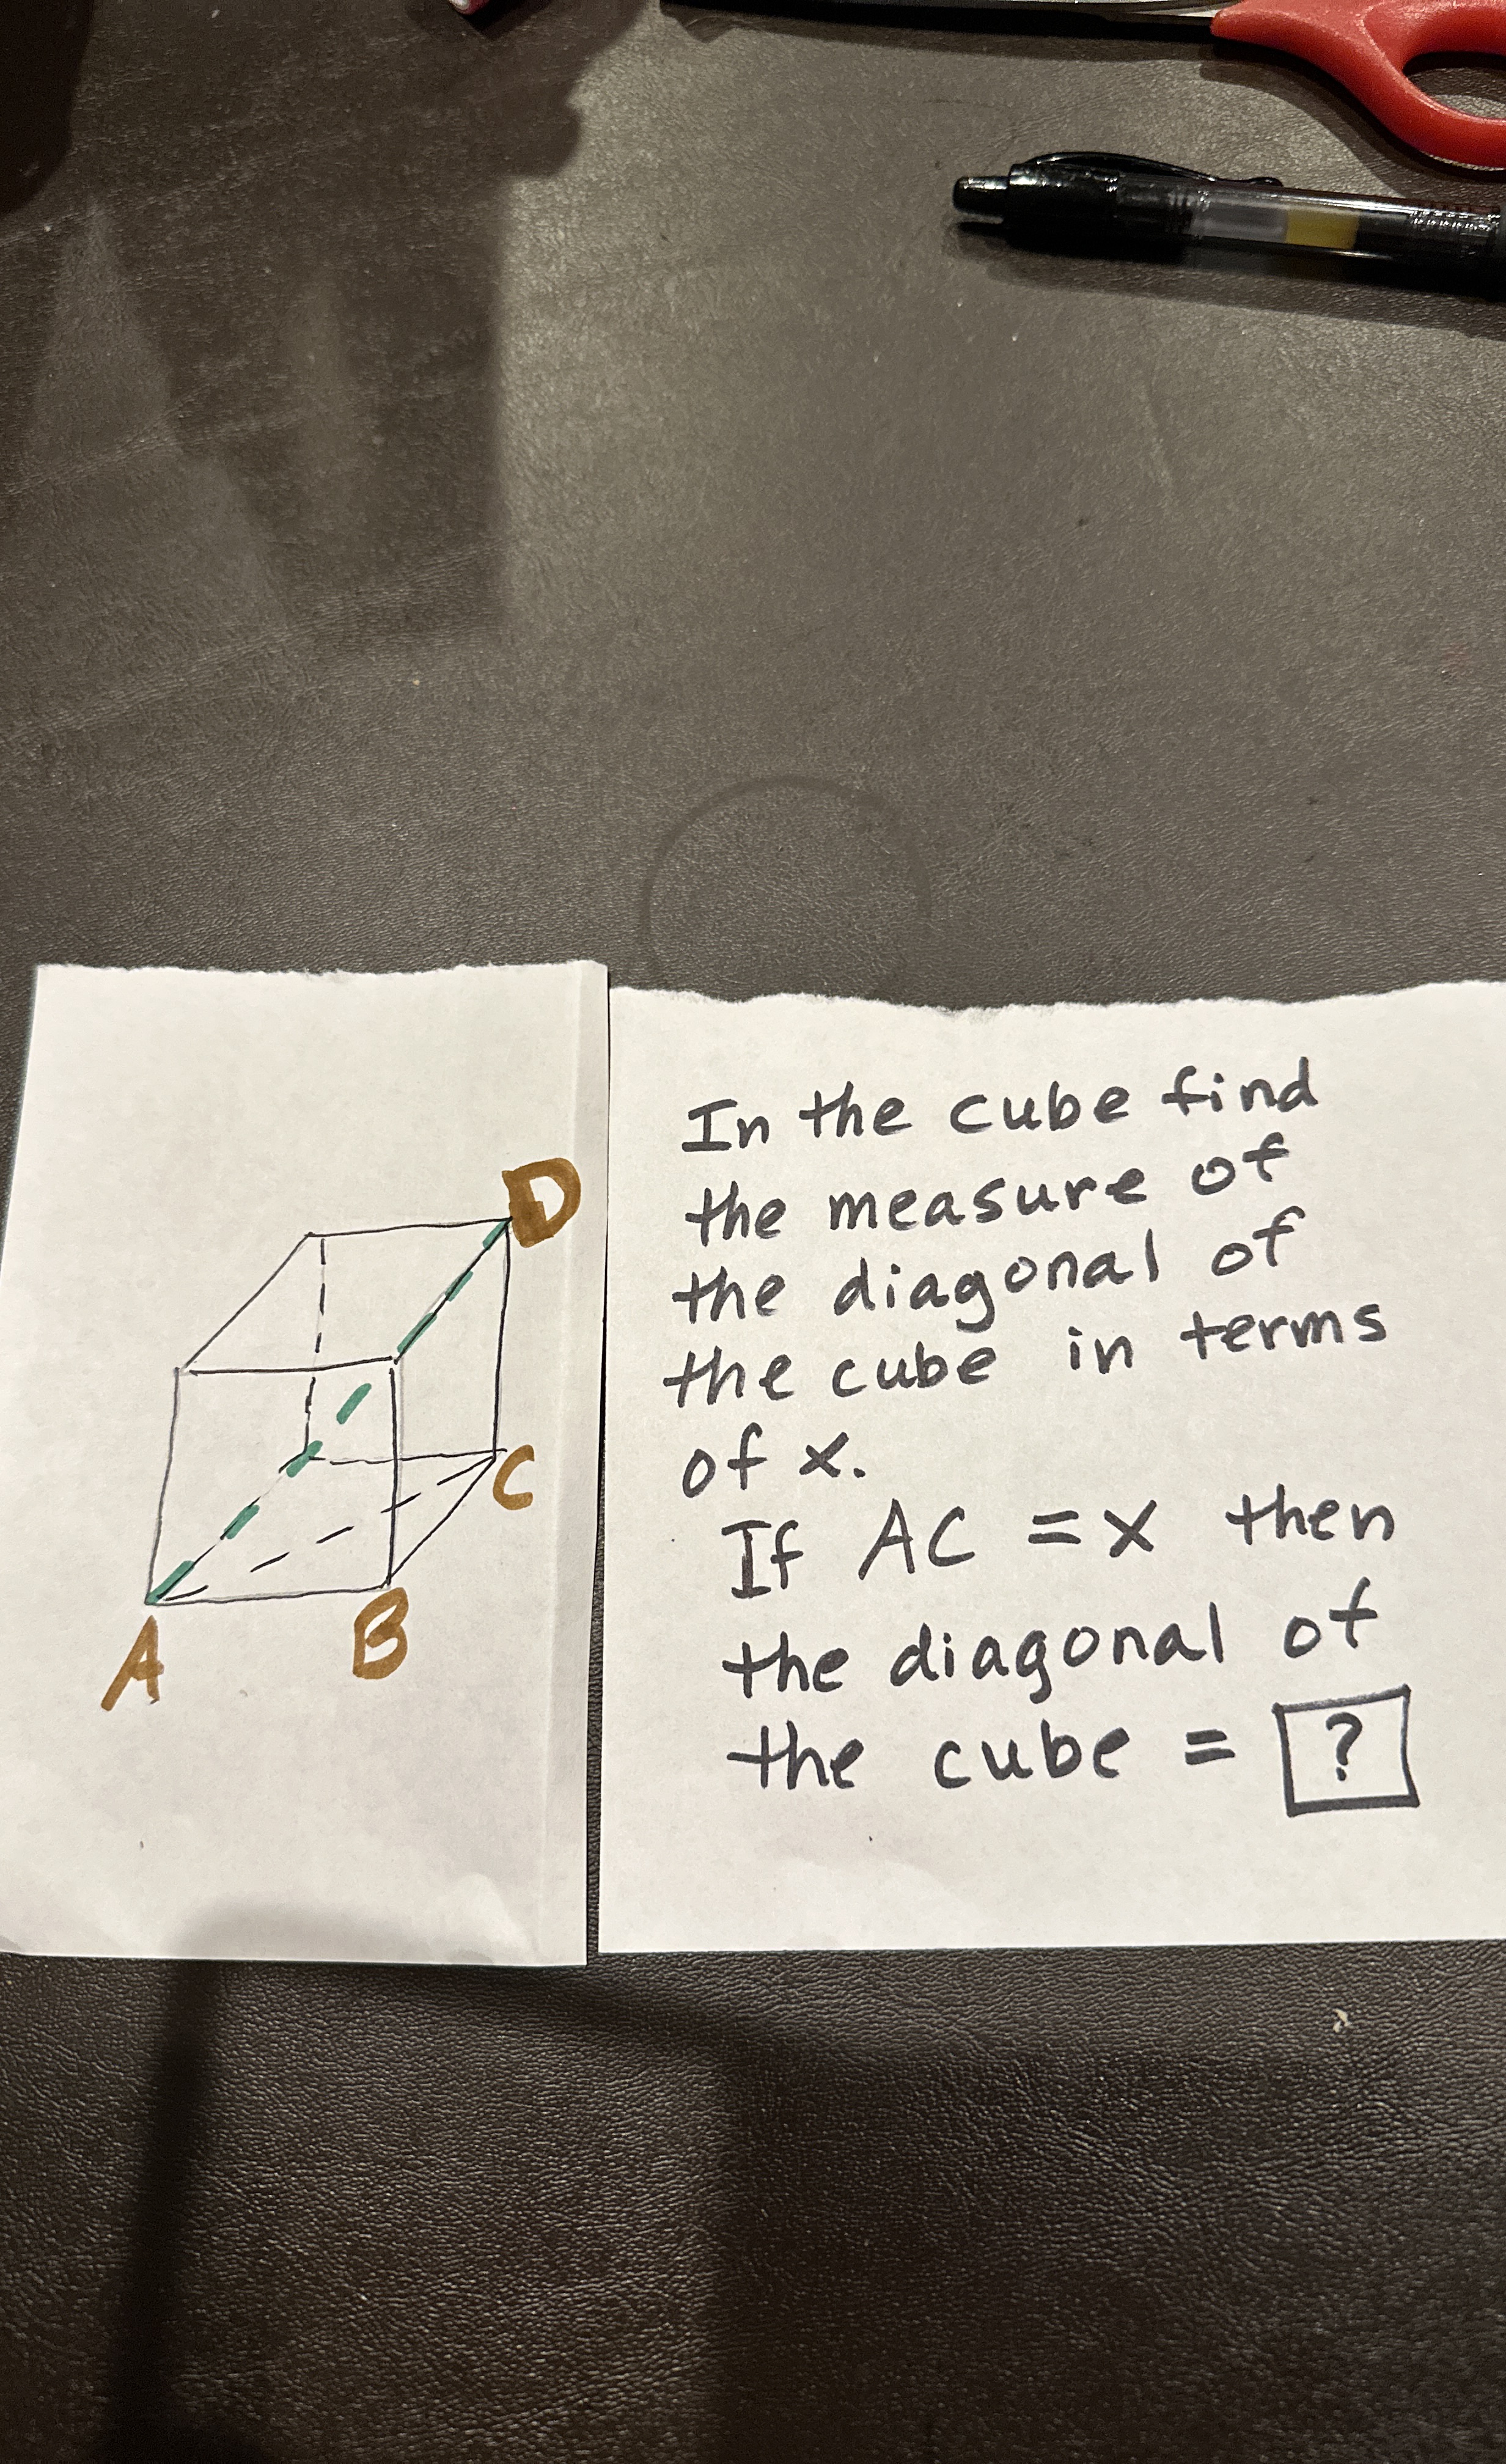 D
C
A
B
In the cube find
the measure of
the diagonal of
the cube in terms
of x.
If AC = x then
the diagonal of
the cube = ?